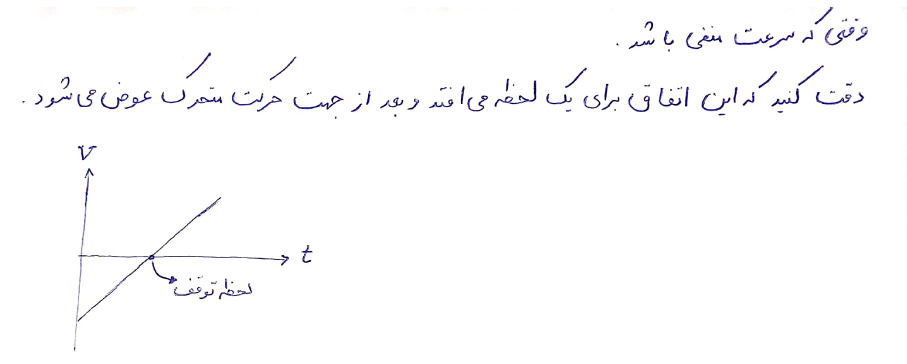 وقتی که سرعت منفی باشد .
دقت کنید که این اتفاق برای یک لحظه می افتد و بعد از جهت حرکت متحرک عوض می شود .
V
t
لحظه توقف